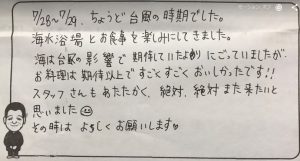 7/28~7/29. ちょうど台風の時期でした。
海水浴場とお食事を楽しみにしてきました。
海は台風の影響で期待していたよりにごっていましたが、
お料理は期待以上ですごくすごくおいしかったです!!
スタッフさんもあたたかく、絶対、絶対また来たいと
思いました☺
その時はよろしくお願いします♡